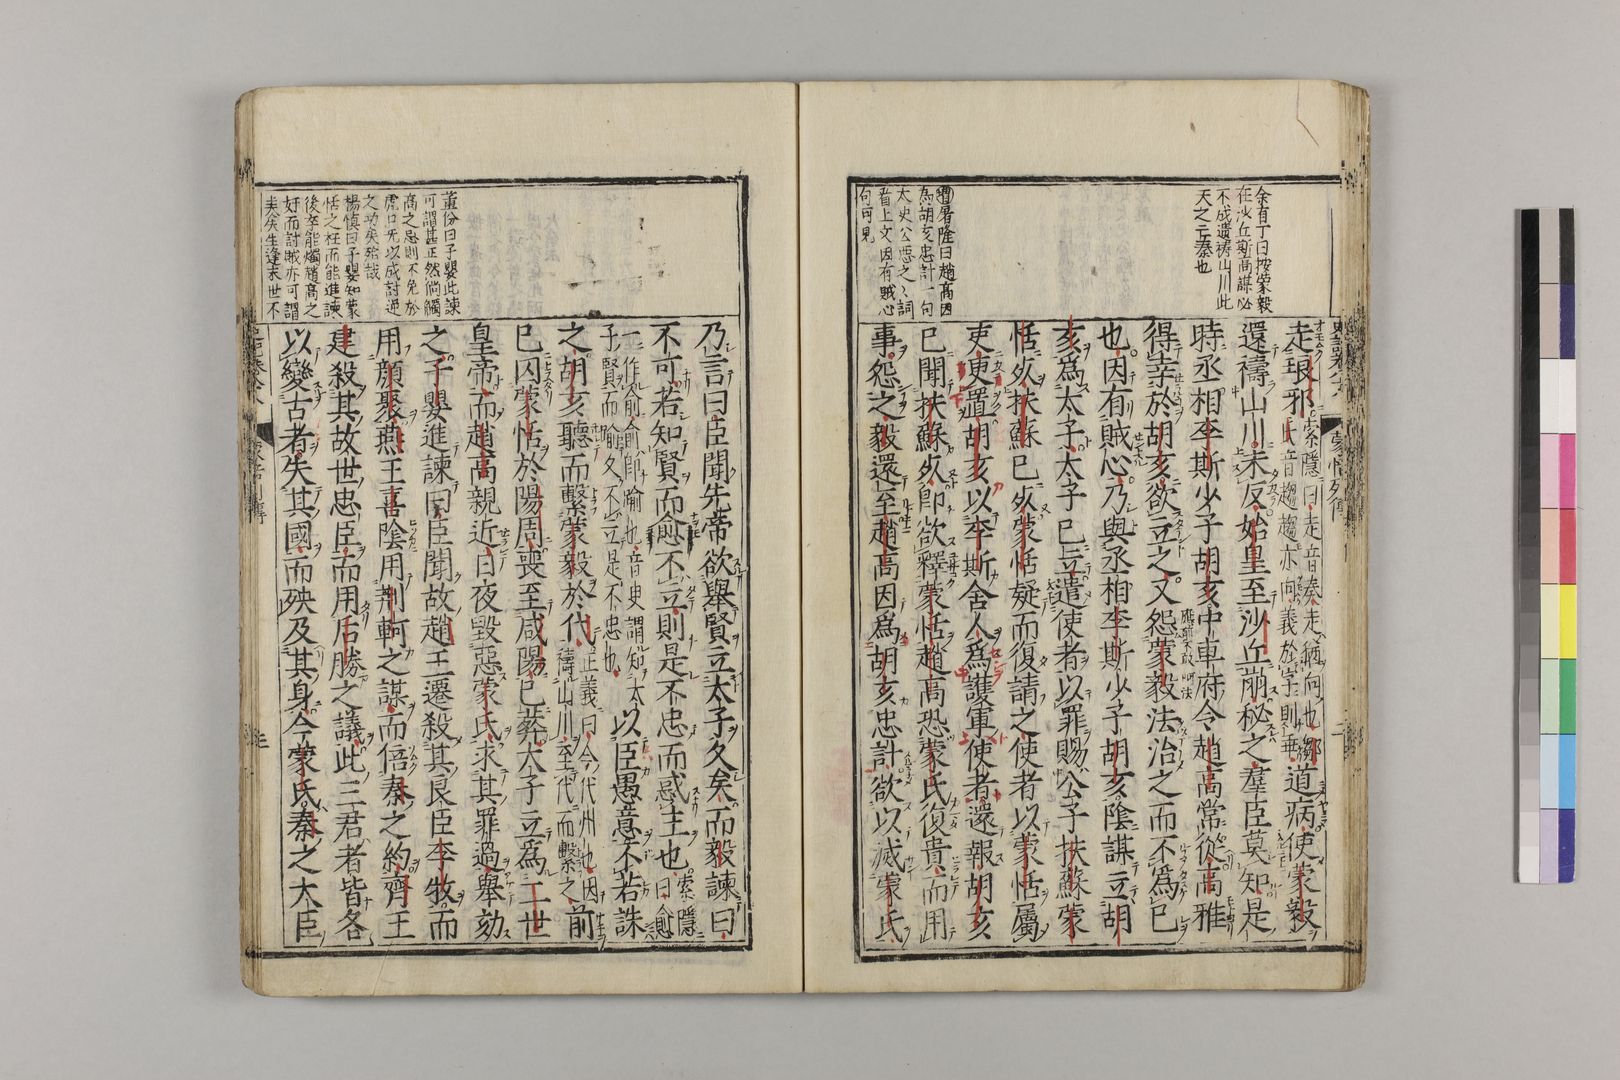 余有丁曰按蒙毅
在沙丘斯高謀必
不成遣禱山川此
天之亡秦也
董份曰趙高因
為胡亥忠計一句
太史公惡之之詞
者上文因有賊心
句可見
走琅邪索隱曰走音奏走猶向也鄒氏音趨趨亦向義於字則乖道病使蒙毅
還禱山川未反始皇至沙丘崩秘之羣臣莫知是
時丞相李斯少子胡亥中車府令趙高常從高雅
得幸於胡亥欲立之又怨蒙毅法治之而不為己
也因有賊心乃與丞相李斯少子胡亥陰謀立胡
亥為太子太子已立遣使者以罪賜公子扶蘇蒙
恬死扶蘇已死蒙恬疑而復請之使者以蒙恬屬
吏更置胡亥以李斯舍人為護軍使者還報胡亥
已聞扶蘇死即欲釋蒙恬趙高恐蒙氏復貴而用
事怨之毅還至趙高因為胡亥忠計欲以滅蒙氏
董份曰子嬰此諫
可謂甚正然倘觸
高之忌則不免於
虎口先以成討逆
之功矣殆哉
楊慎曰子嬰知蒙
恬之枉而能進諫
後卒能燭趙高之
奸而討賊亦可謂
矣生逢末世不
乃言曰臣聞先帝欲舉賢立太子久矣而毅諫曰
不可若知賢而愈不立則是不忠而惑主也索隱曰愈
一作俞俞即喻也音史謂知太子賢而喻久不立是不忠也以臣愚意不若誅
之胡亥聽而繫蒙毅於代正義曰今代州也因禱山川至代而繫之前
已囚蒙恬於陽周喪至咸陽已葬太子立為二世
皇帝而趙高親近日夜毀惡蒙氏求其罪過舉劾
之子嬰進諫曰臣聞故趙王遷殺其良臣李牧而
用顏聚燕王喜陰用荊軻之謀而倍秦之約齊王
建殺其故世忠臣而用后勝之議此三君者皆各
以變古者失其國而殃及其身今蒙氏秦之大臣